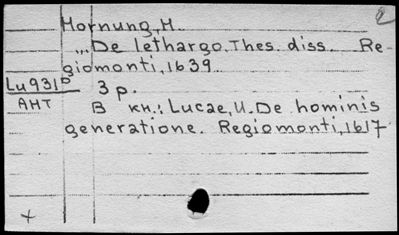 Hornung, M.
,,, De lethargo. Thes. diss. Re-
giomonti, 1639
Lu 931р 3 p.
АНТ В кн.: Lucae, U. De hominis
generatione. Regiomonti, 1617